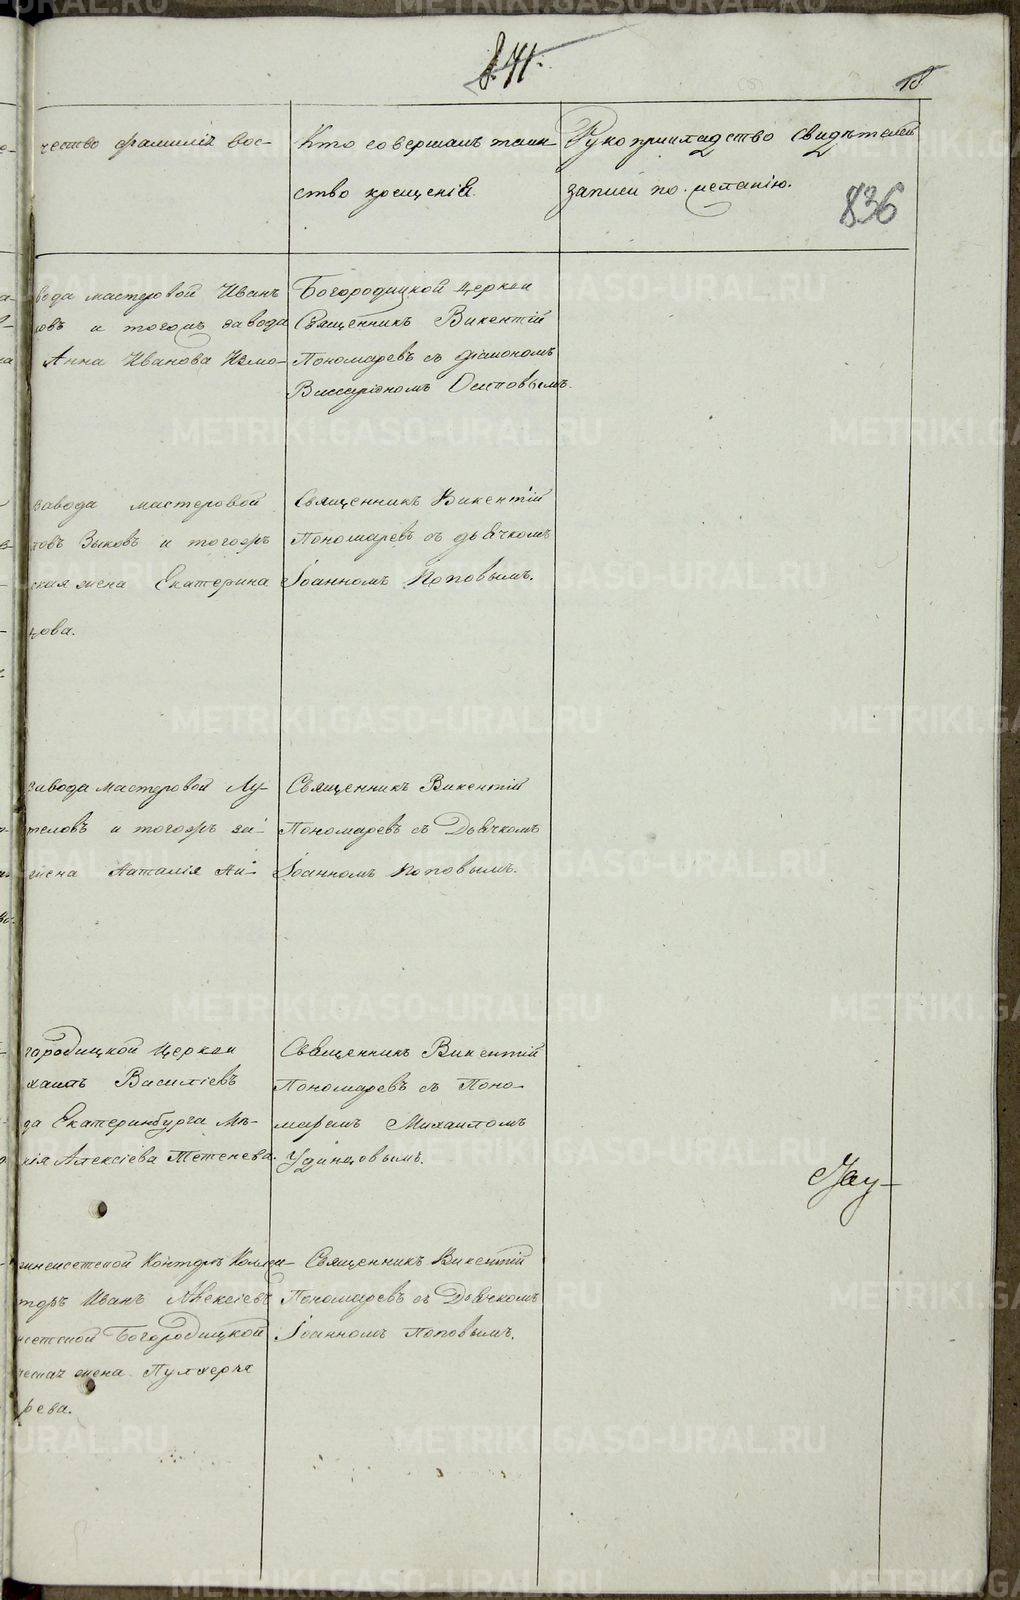 841.
18
чество фамилiя вос-
Кто совершалъ таин-
ство крещенiя.
Рукоприкладство свидѣтелей
записи по желанiю.
836
вода мастеровой Иванъ
овъ и тогожъ завода
Анна Иванова Измо-
Богородицкой церкви
Священникъ Викентiй
Пономаревъ съ дiакономъ
Виссарiономъ Осиповымъ.
завода мастеровой
товъ Зыковъ и тогожъ
ская жена Екатерина
цова.
Священникъ Викентiй
Пономаревъ съ дьячкомъ
Iоанномъ Поповымъ.
завода мастеровой Лу-
теловъ и тогожъ за-
жена Наталiя Ни-
Священникъ Викентiй
Пономаревъ съ Дьячкомъ
Iоанномъ Поповымъ.
городицкой Церкви
хаилъ Василiевъ
да Екатеринбурга Мѣ-
кiя Алексiева Тетенева.
Священникъ Викентiй
Пономаревъ съ Поно-
маремъ Михаиломъ
Удинцовымъ.
Зау-
инсисетской Конторѣ Коллеи-
торъ Иванъ Алексiевъ
исетской Богородицкой
жена Пулхерiя
рева.
Священникъ Викентiй
Пономаревъ съ Дьячкомъ
Iоанномъ Поповымъ.
METRIKI.GASO-URAL.RU